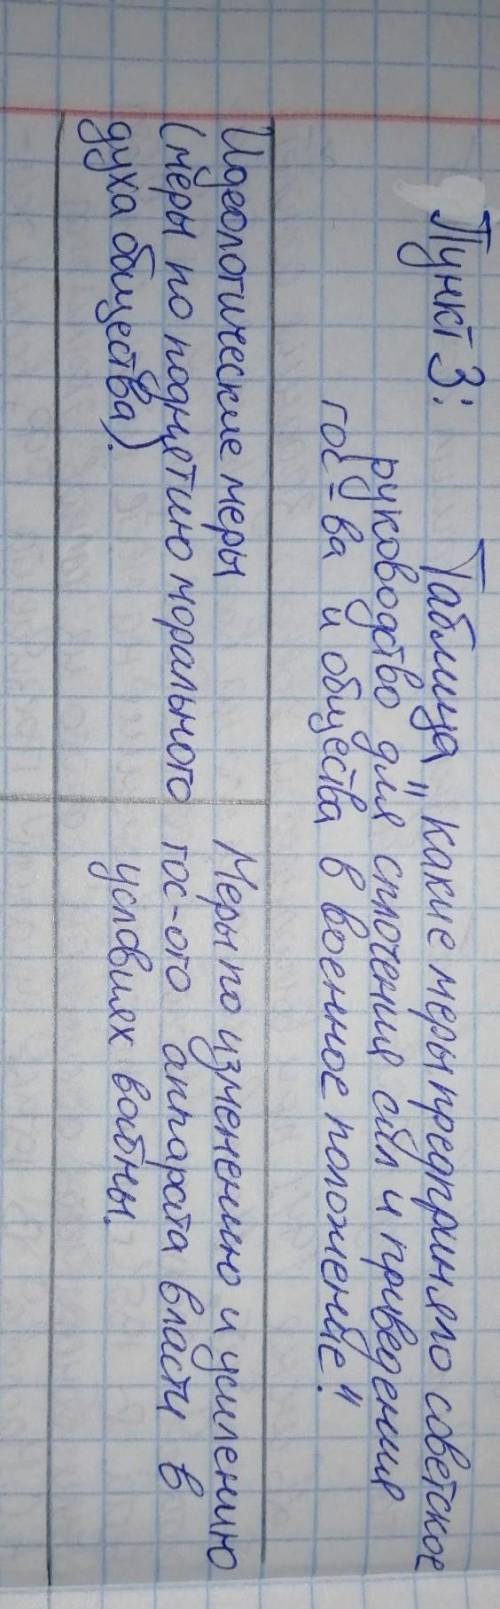 Пункт 3: Таблица "какие меры предприняло советское
руководство для сплочения сил и приведения
гос-ва и общества в военное положение".
Идеологические меры
(меры по поднятию морального
духа общества).
Меры по изменению и усилению
гос-ого аппарата власти в
условиях войны.